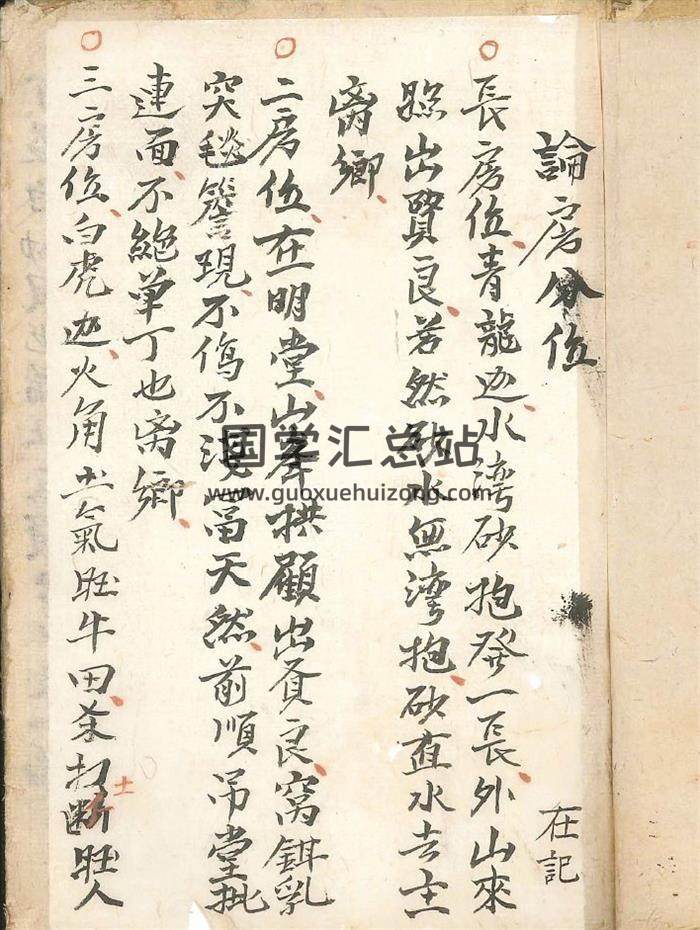 論房分位
在記
長房位青龍边水湾砂抱發一長外山來
照出賢良若然砂水無湾抱砂直水去主
离鄉
二房位在明堂山峯拱顧出貧良窝鉺乳
突毯簷現不傷不淺富天然前順吊堂批
連面不絕单丁也离鄉
三房位白虎边火角土氣旺牛田 打断旺人
士
国学汇总站
www.guoxuehuizong.com